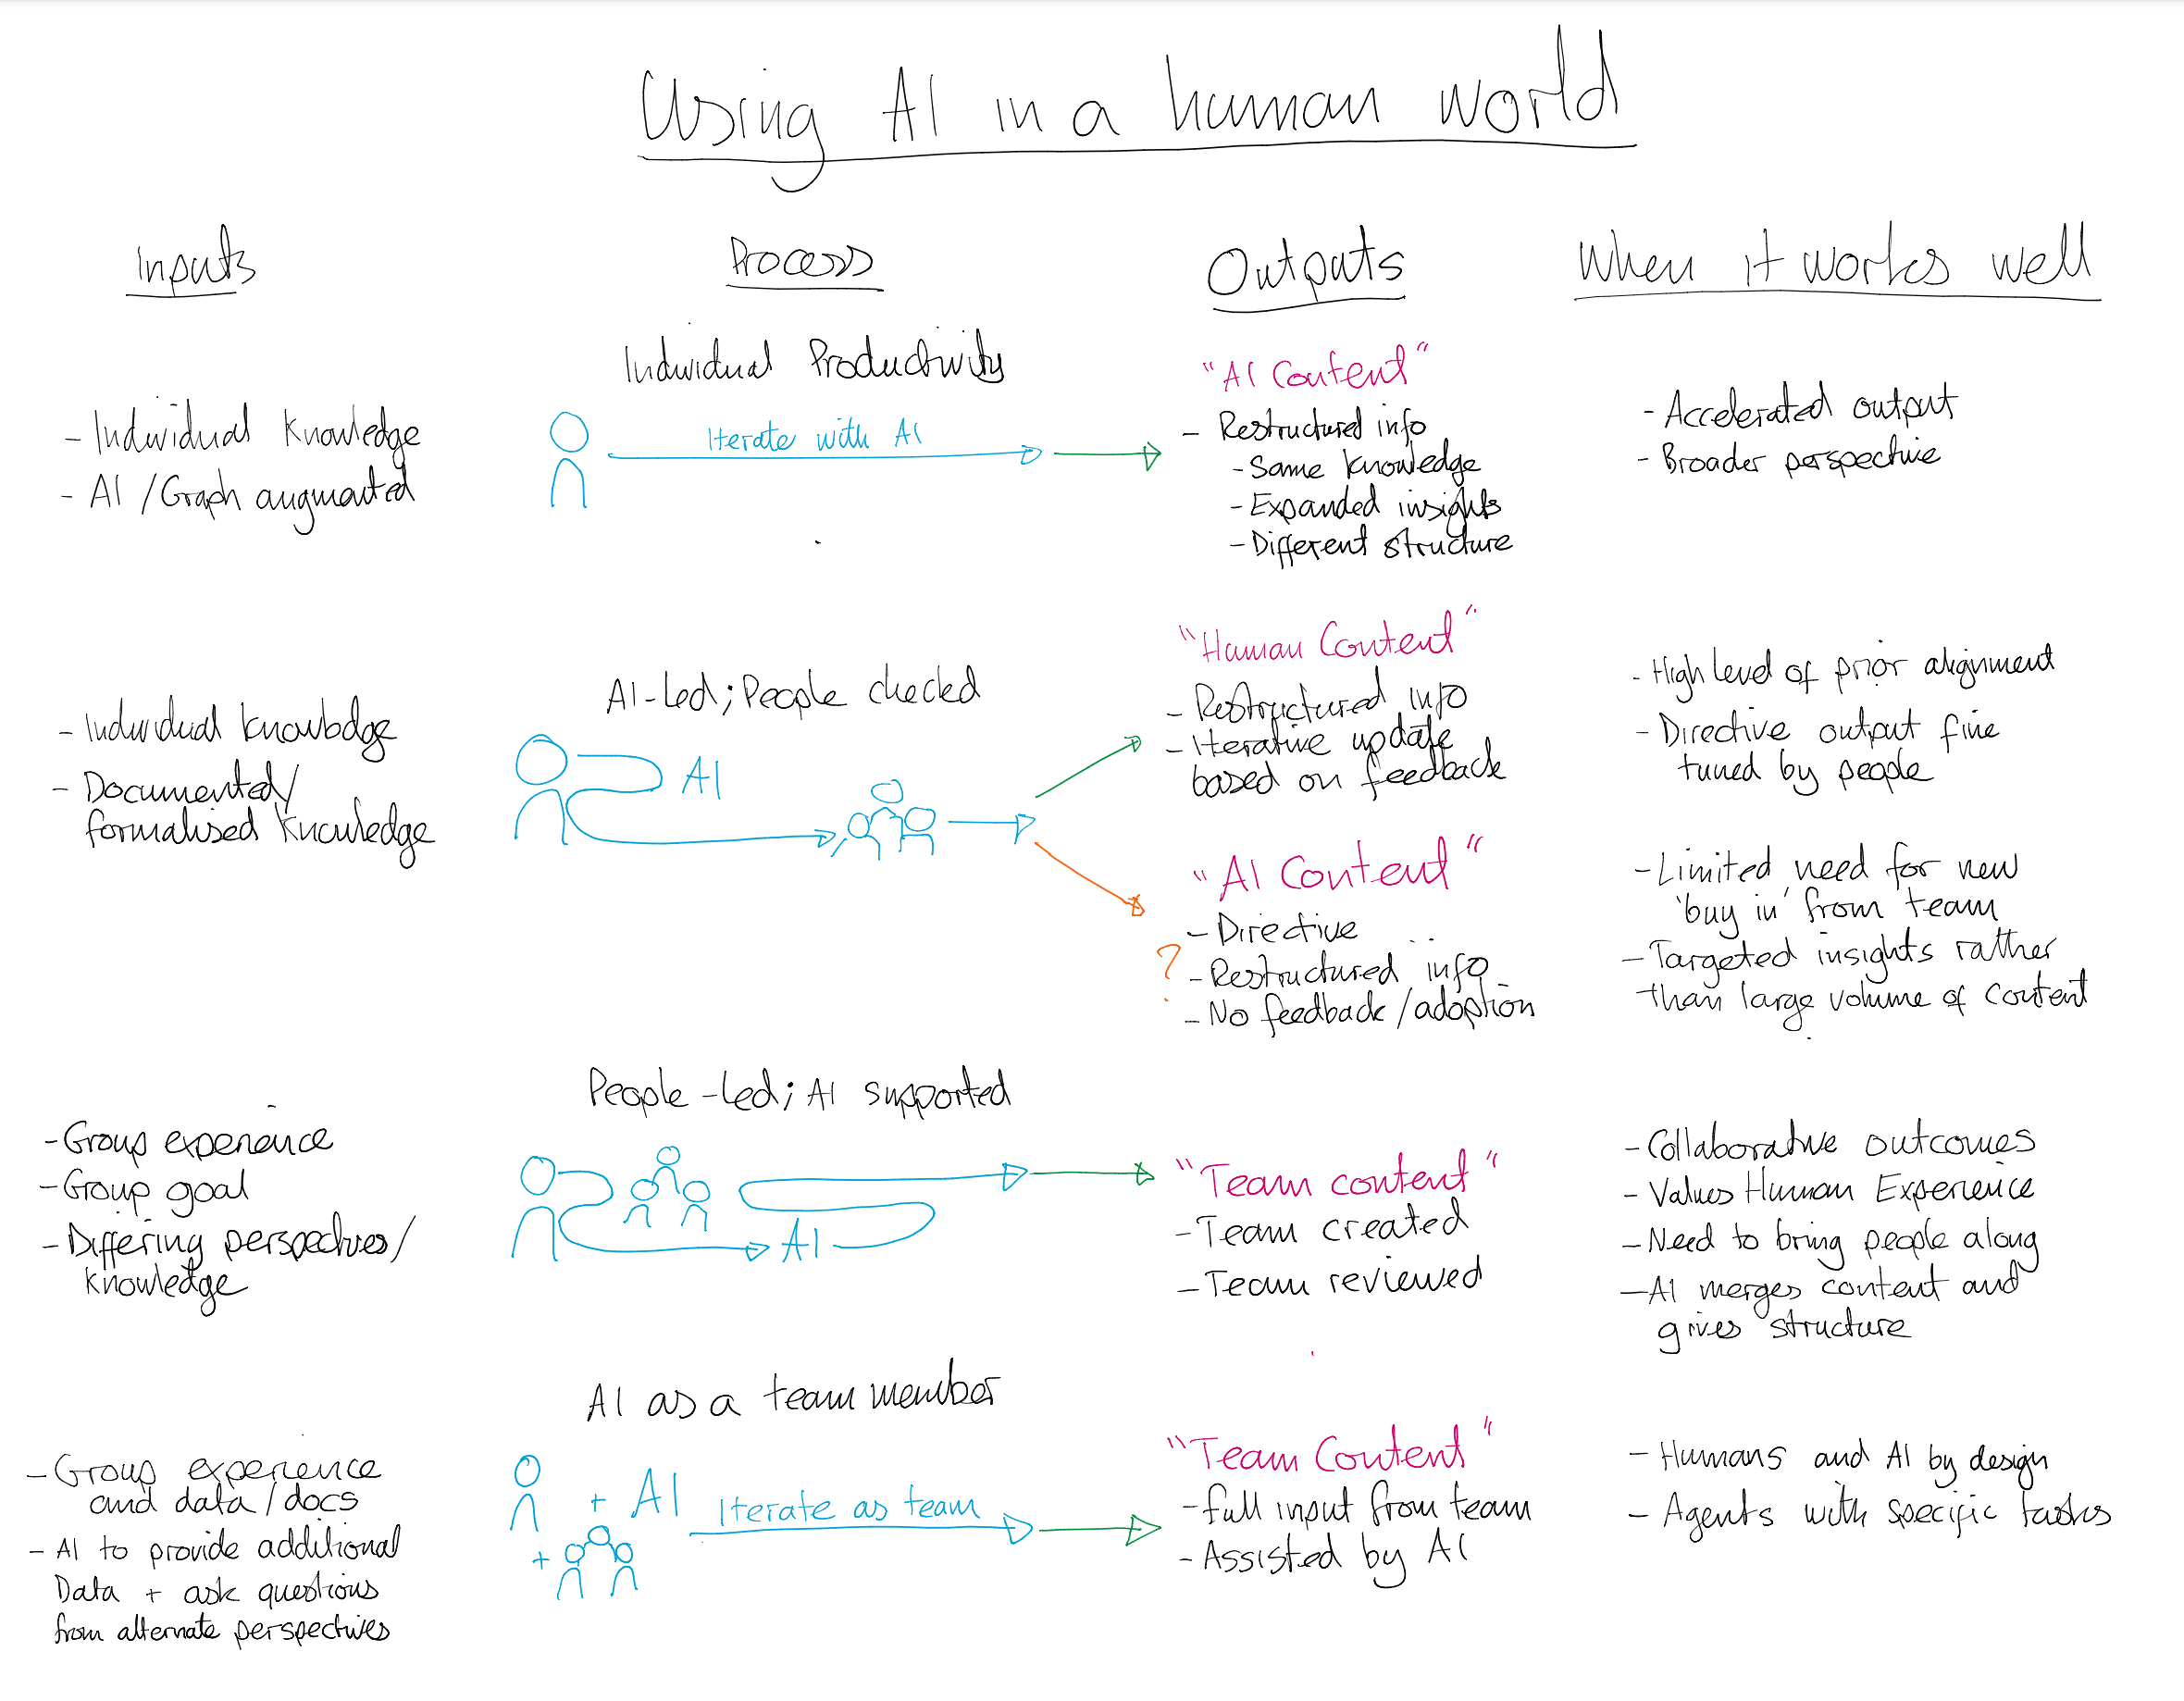 Using AI in a human world
Inputs
Process
Outputs
When it works well
Individual Productivity
- Individual Knowledge
- AI / Graph augmented
Iterate with AI
"AI Content"
- Restructured info
- Same knowledge
- Expanded insights
- Different structure
- Accelerated output
- Broader perspective
AI-Led; People checked
- Individual knowledge
- Documented/
formalised knowledge
AI
"Human Content"
- Restructured info
- Iterative update
based on feedback
- High level of prior alignment
- Directive output fine
tuned by people
"AI Content"
- Directive
? - Restructured info
- No feedback/adoption
- Limited need for new
'buy in' from team
- Targeted insights rather
than large volume of content
People-Led; AI supported
- Group experience
- Group goal
- Differing perspectives/
knowledge
AI
"Team content"
- Team created
- Team reviewed
- Collaborative outcomes
- Values Human Experience
- Need to bring people along
- AI merges content and
gives structure
AI as a team member
- Group experience
and data/docs
- AI to provide additional
Data + ask questions
from alternate perspectives
+ AI
+
Iterate as team
"Team Content"
- Full input from team
- Assisted by AI
- Humans and AI by design
- Agents with specific tasks